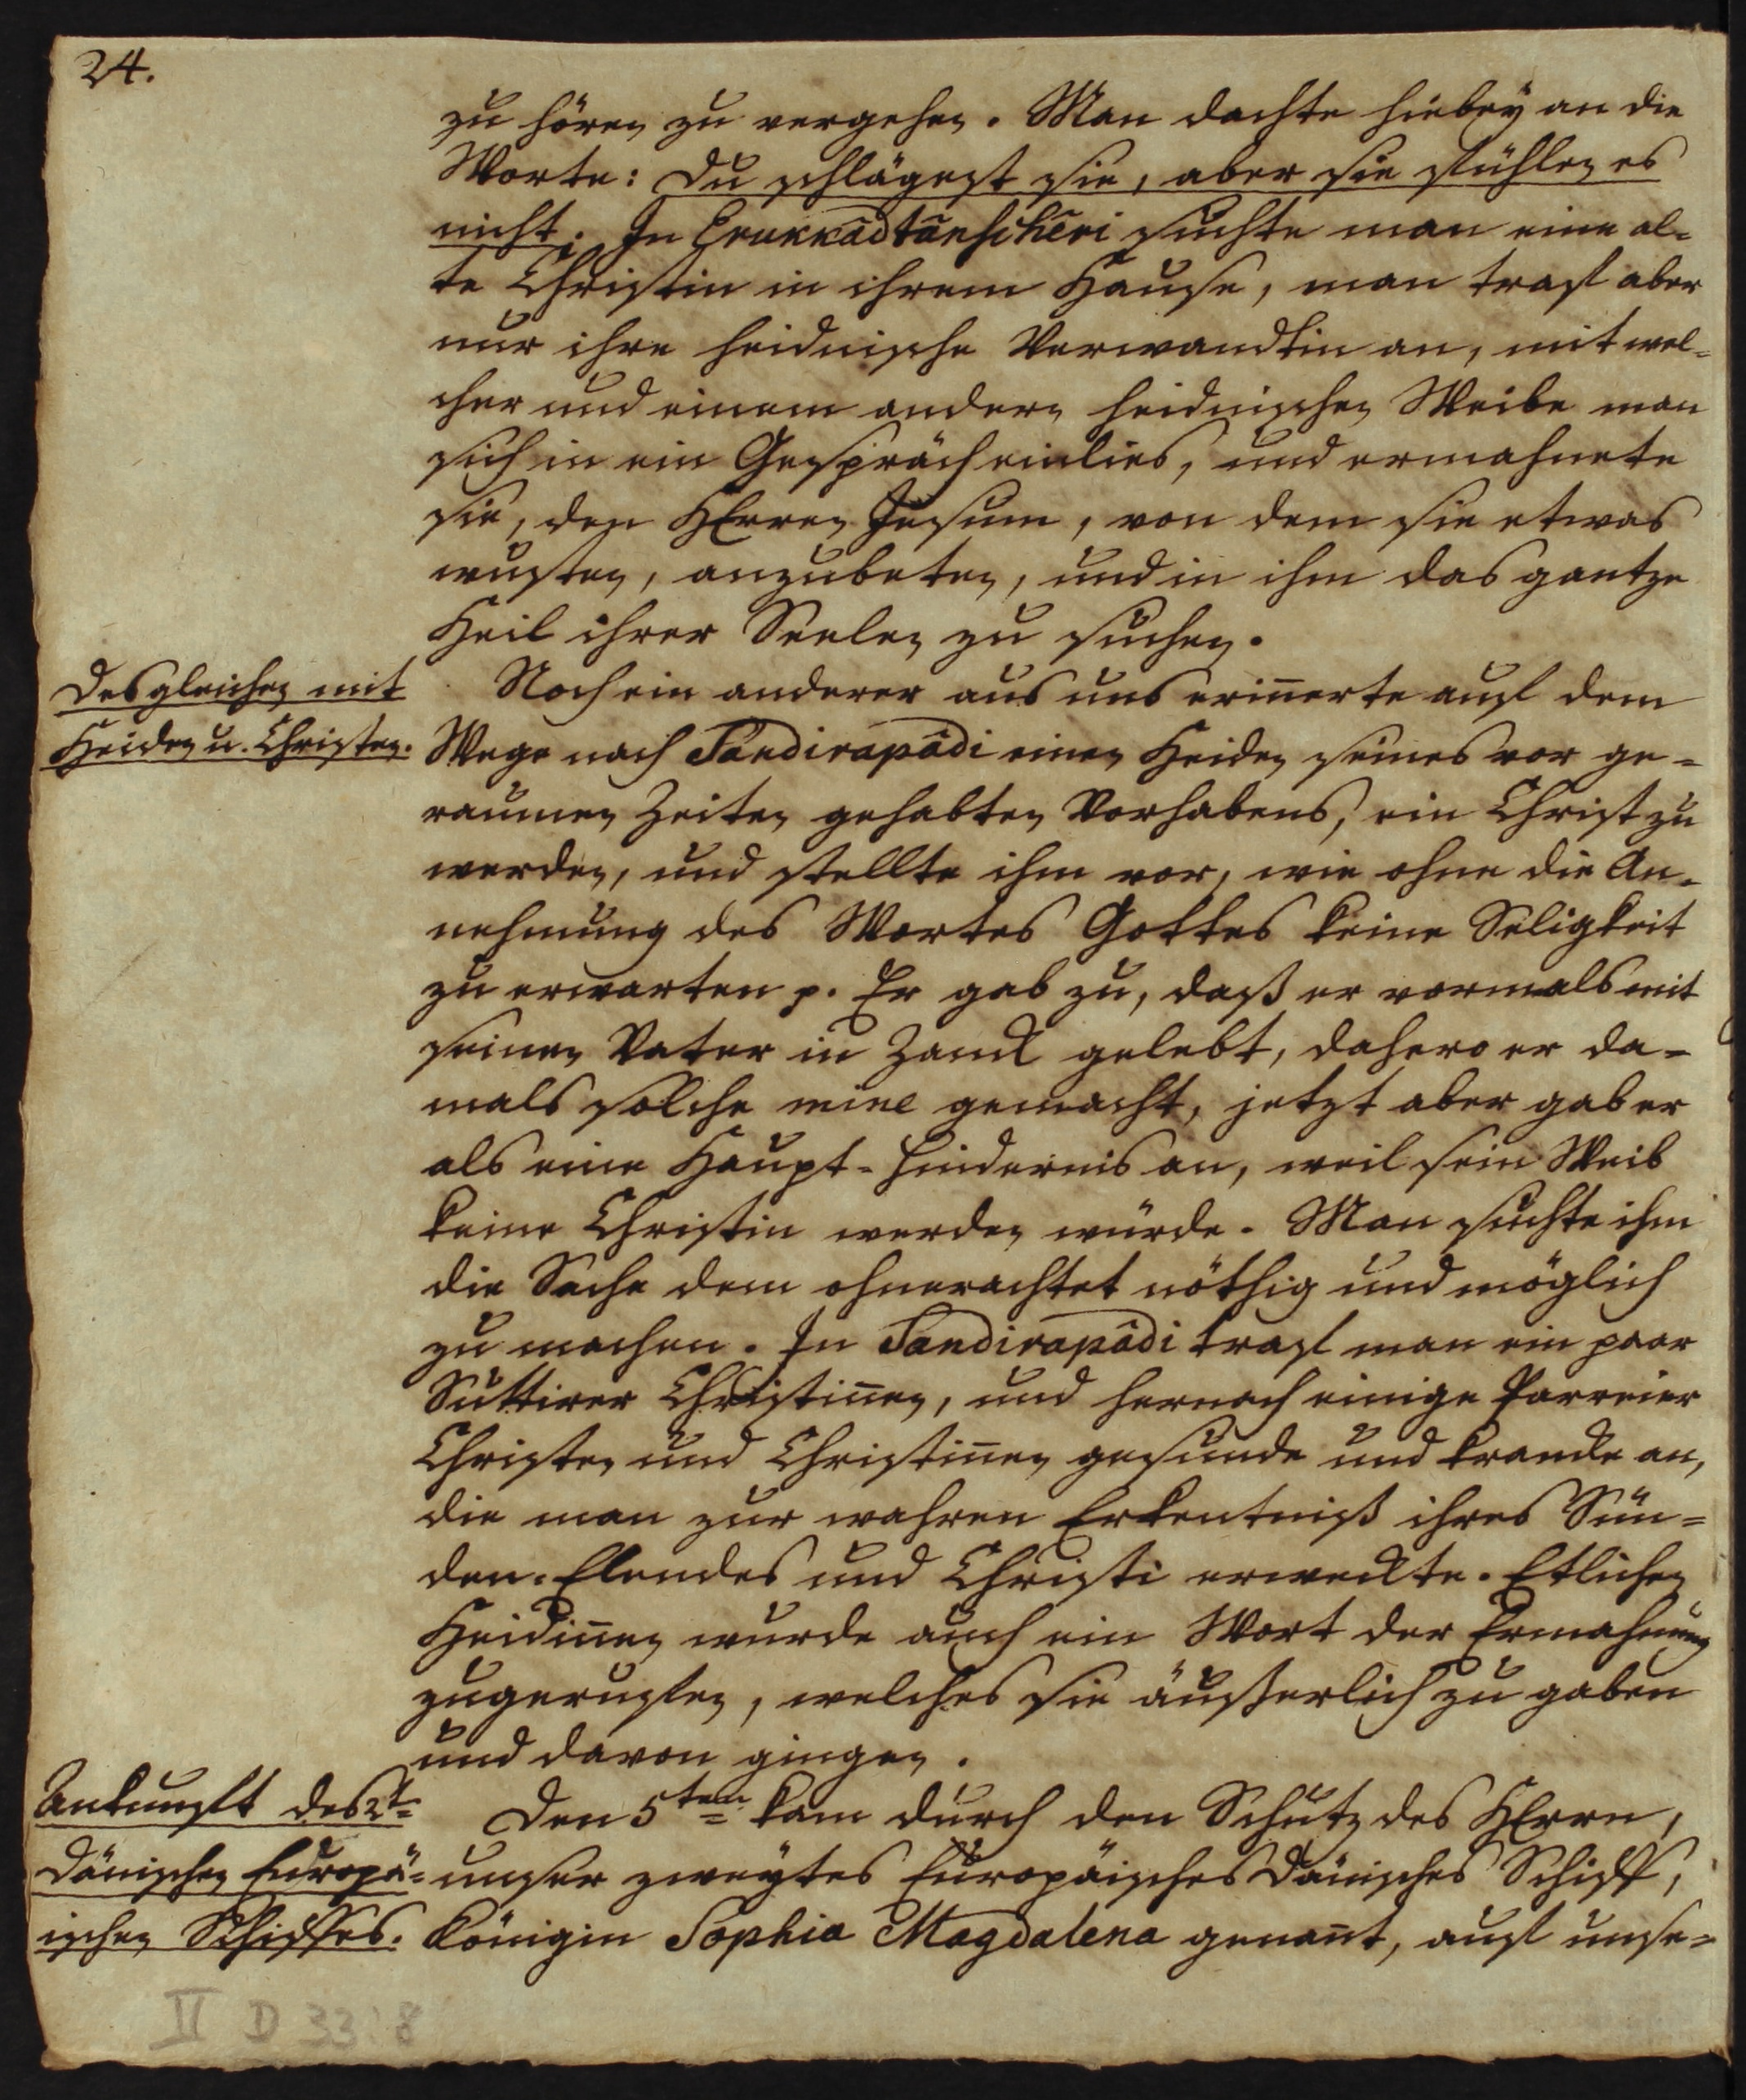 24.
zu hören zu vergehen. Man dachte hiebey an die
Worte: Du schlägest sie, aber sie fühlen es
nicht. In Erukkâdtânschêri suchte man eine al-
te Christin in ihrem Hause, man traf aber
nur ihre heidnische Verwandtin an, mit wel-
cher und einem andern heidnischen Weibe man
sich in ein Gespräch einlies, und ermahnete
sie, den HErrn Jesum, von dem sie etwas
wusten, anzubeten, und in ihm das gantze
Heil ihrer Seelen zu suchen.
Desgleichen mit
Heiden u. Christen.
Noch ein anderer aus uns erin̄erte auf dem
Wege nach Sandirapâdi einen Heiden seines vor ge-
raumen Zeiten gehabten Vorhabens, ein Christ zu
werden, und stellte ihm vor, wie ohne die An-
nehmung des Wortes Gottes keine Seligkeit
zu erwarten p. Er gab zu, daß er vormals mit
seinem Vater in Zanck gelebt, dahero er da-
mals solche mine gemacht, jetzt aber gab er
als eine Haupt-Hindernis an, weil sein Weib
keine Christin werden würde. Man suchte ihm
die Sache dem ohnerachtet nöthig und möglich
zu machen. In Sandirapâdi traf man ein paar
Suttirer Christin̄en, und hernach einige Parreier
Christen und Christin̄en gesunde und krancke an,
die man zur wahren Erkentniß ihres Sün-
den-Elendes und Christi erweckte. Etlichen
Heidin̄en wurde auch ein Wort der Ermahnung
zugeruffen, welches sie äusserlich zu gaben
und davon gingen.
Ankunfft des 2t.
Dänischen Europä-
ischen Schiffes.
Den 5ten kam durch den Schutz des HErrn,
unser zweytes Europäisches Dänisches Schiff,
Königin Sophia Magdalena genan̄t, auf unse-
II D 33:8